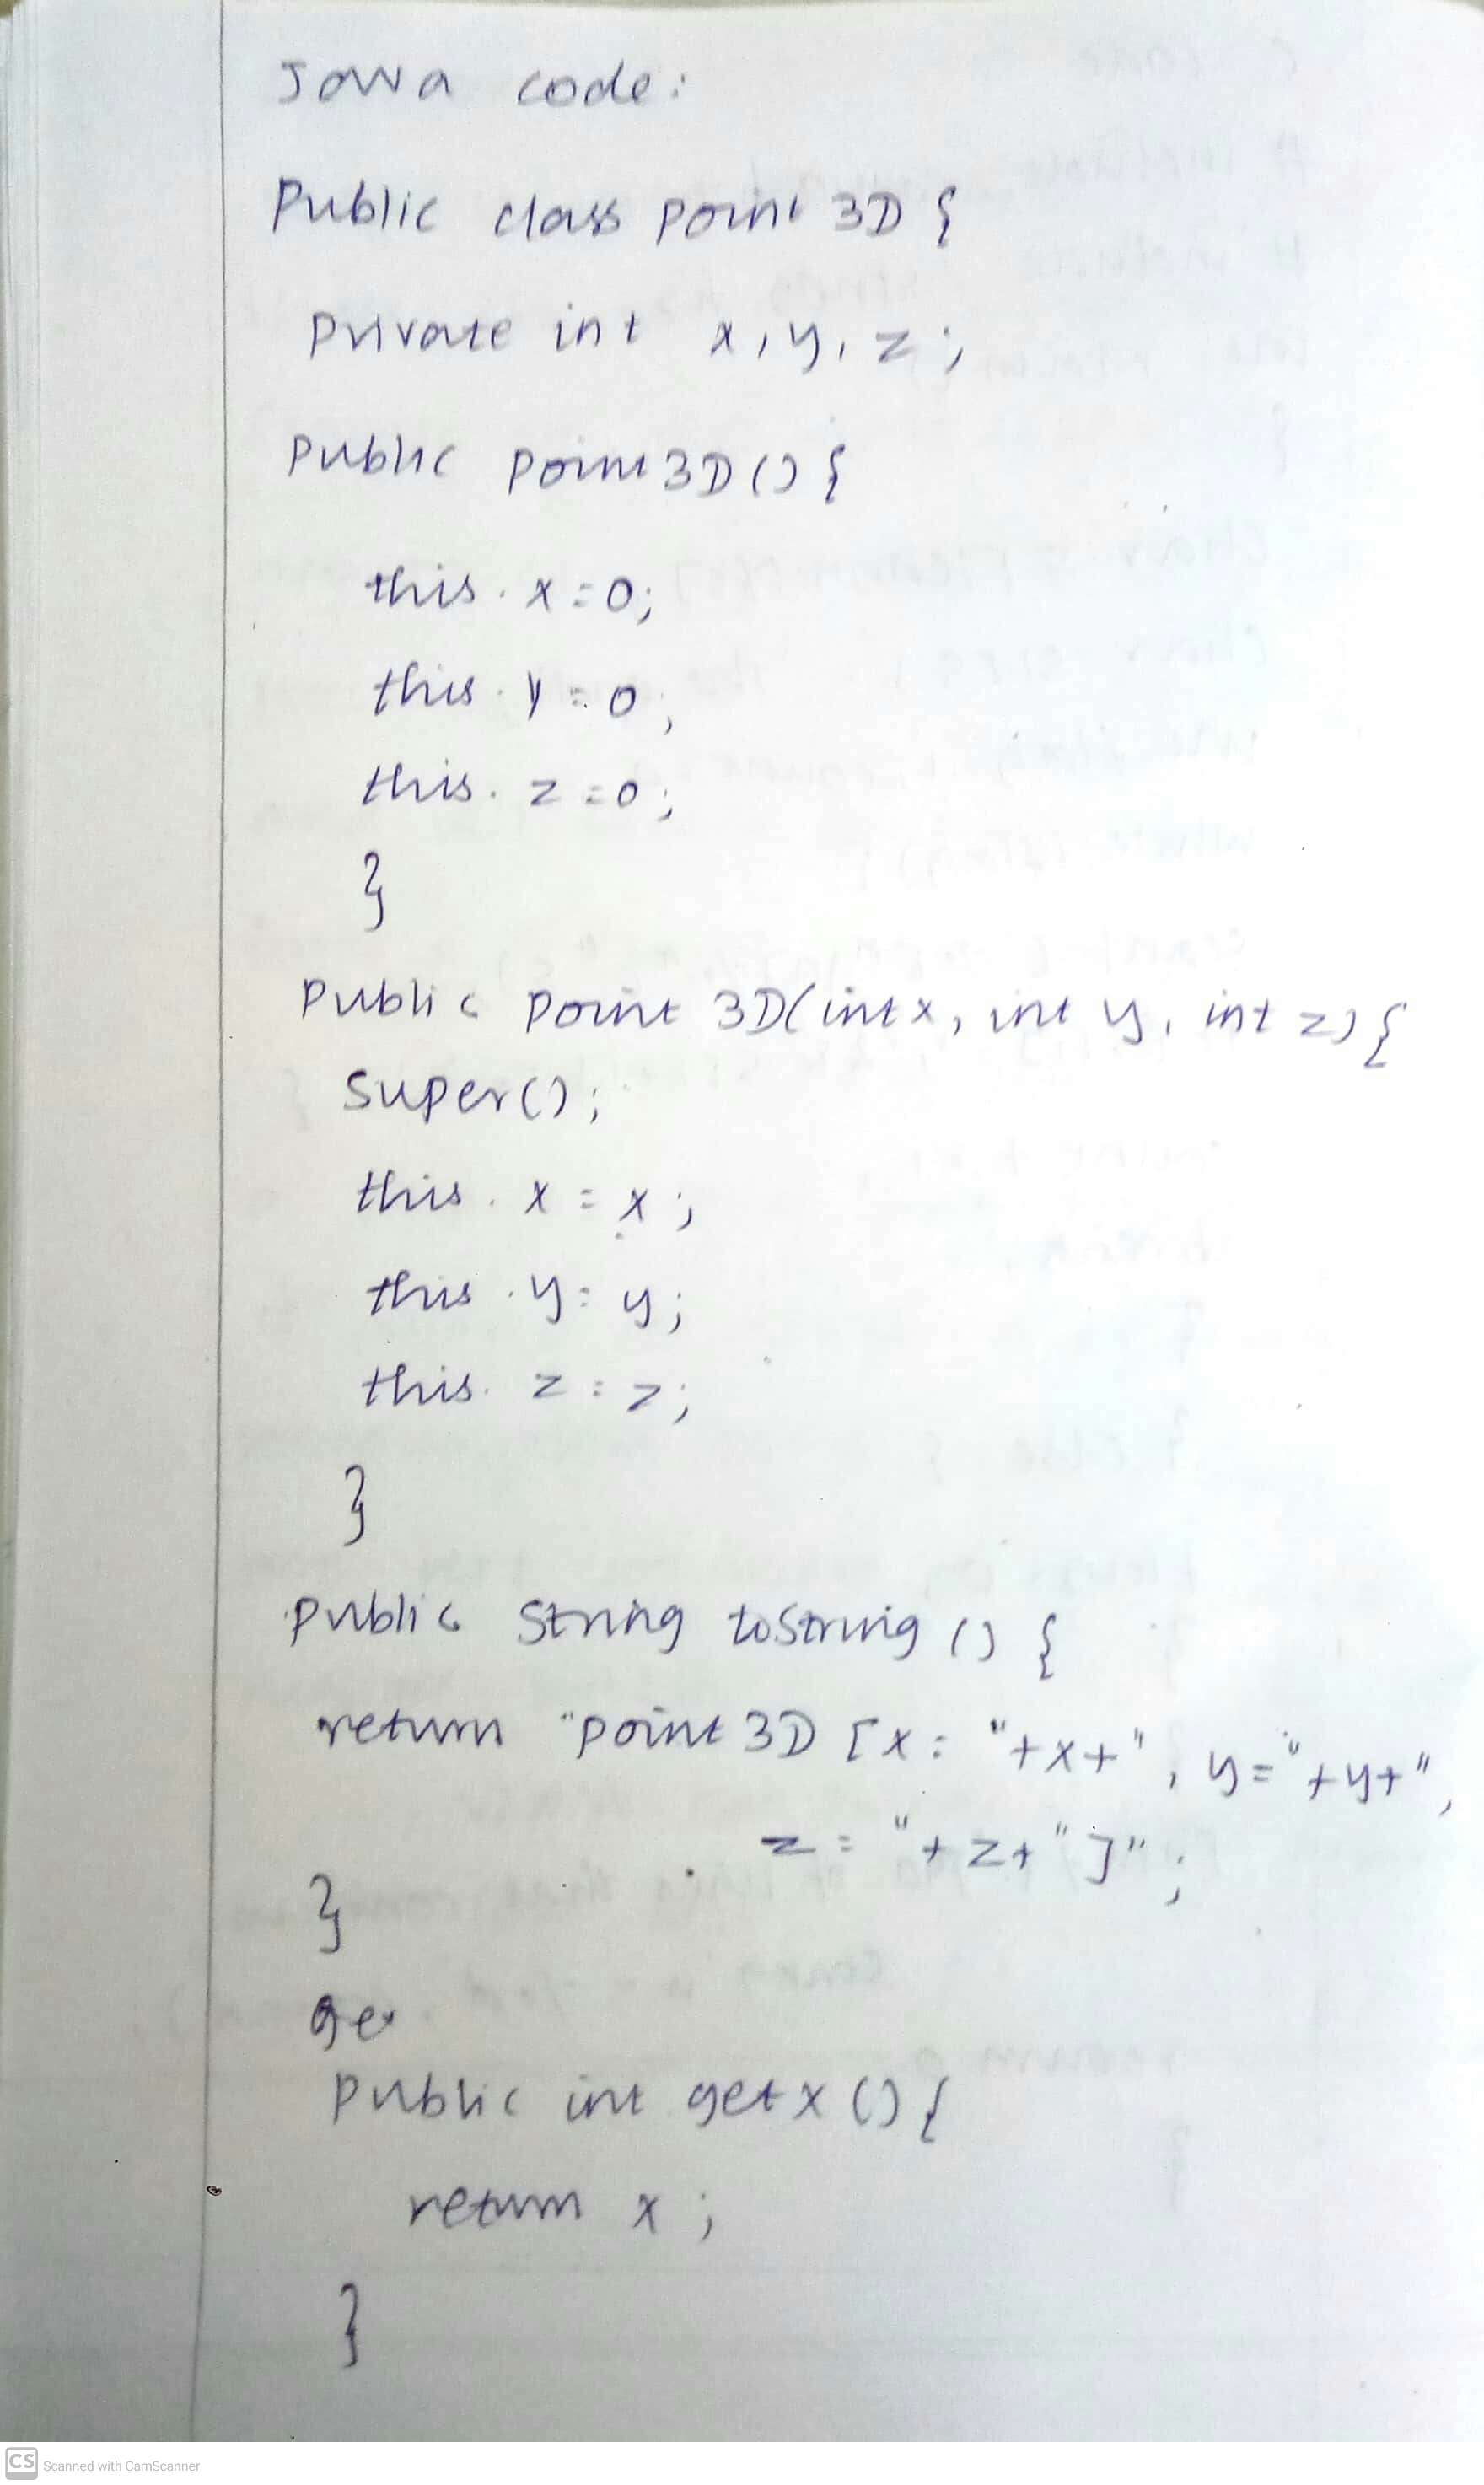 Java code:
Public class point 3D {
Private int x, y, z ;
Public point 3D () {
this . x = 0;
this . y = 0;
this . z = 0;
}
Public point 3D(int x, int y, int z) {
Super();
this . x = x ;
this . y = y;
this . z = z;
}
public String toString () {
return "point 3D [x= "+x+" , y="+y+",
z = "+z+"]" ;
}
ge
Public int getx () {
return x ;
}
CS Scanned with CamScanner